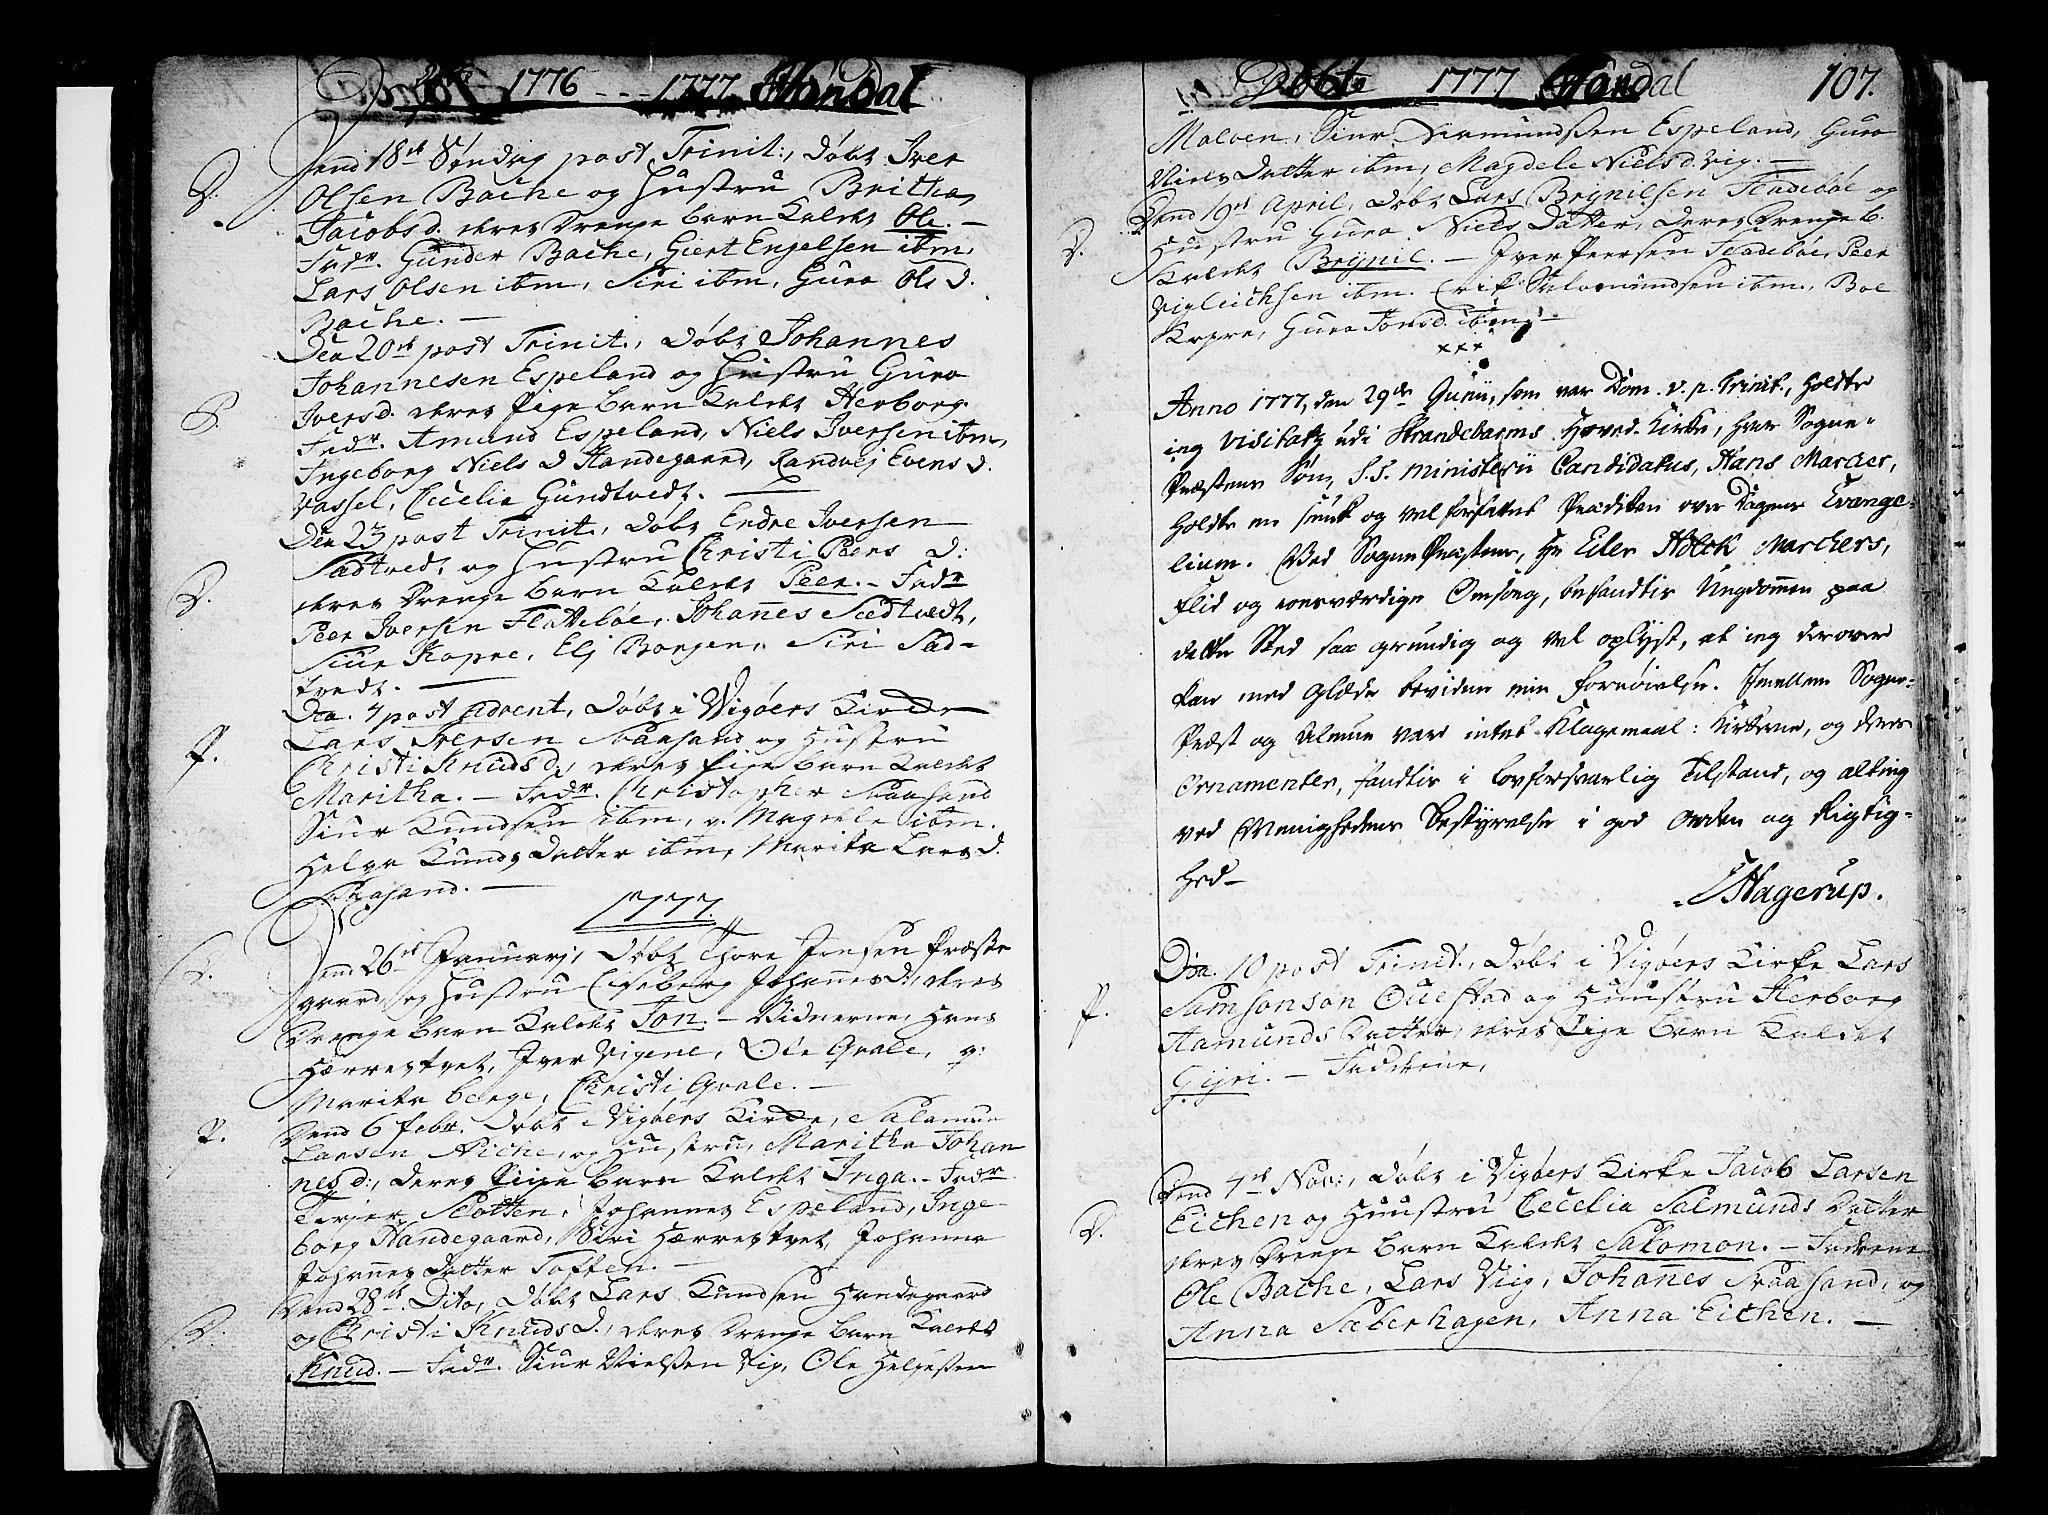 Døbte 1776 - - - 1777 Hándal
Dend 18de Søndag post Trinit:, Døbt Iver
D. Olsen Bache og Hustru Britha
Jacobs d. deres Drenge barn Kaldet Ole. —
Fadr. Gunder Bache, Giert Engelsen ibm,
Lars Olsen ibm, Siri ibm, Guro Ols d.
Bache. —
Den 20de post Trinit:, Døbt Johannes
Johannesen Espeland og Hustru Guro
P. Ivers d. deres Pige barn Kaldet Herborg.
Fadr. Amund Espeland, Niels Iversen ibm,
Ingeborg Niels d Handegaard, Randvej Evens d.
Vassel, Cicelia Gundtvedt. —
Den 23 post Trinit:, Døbt Endre Iversen
Sadtvedt, og Hustru Christi Peers d:
D. deres Drenge barn Kaldet Peer. — Fadr
Peer Iversen Flatebøe, Johannes Sædtvedt,
Siur Kopre, Elj Borgen, Siri Sad-
tvedt. —
Dca. 4 post Advent, Døbt i Vigøers Kirke
P. Lars Iversen Skaasand og Hustru
Christi Knuds D., deres Pige barn Kaldet
Maritha. — Fadr. Christopher Skaasand
Siur Knudsen ibm, og Magrele ibm.
Helga Knuds Datter ibm, Marita Lars d.
Skaasand. —
1777.
D. Dend 26de Januarj, Døbt Thore Jonsen Præste
gaard, og Hustru Liseberg Johannes d:, deres
Drenge barn Kaldet Jon. — Vidnerne, Hans
Hærrestvet, Iver Vigene, Ole Qvale, og:
Marita berge, Christi Qvale. —
P. Dend 6 febr. Døbt i Vigøers Kirke, Salamun
Larsen Aiche, og Hustru, Maritha Johan
nes d:, deres Pige barn Kaldet Inga. — Fadr
Terjer Slotten, Johannes Espeland, Inge-
borg Handegaard, Siri Hærrestvet, Johanna
Johannes Datter Toften. —
Dend 28de Dito, Døbt Lars Knudsen Handegaard
D. og Christi Knuds D., deres Drenge barn Kaldet
Knud. — Fadr. Siur Nielsen Vig, Ole Helgesen
Døbte 1777 Hándal 107.
Malven, Siur Aamundsen Espeland, Guro
Niels Datter ibm, Magdele Niels d. Vig. —
Dend 19de April, Døbt Lars Brynilsen Fladebøe og
D. Hustru Guro Niels Datter, deres Drenge b.
Kaldet Brynil. — Iver Peersen Fladebøe, Peer
Vigleichsen ibm. Erik Salomundsen ibm., Boe
Kopre, Guro Jons d. ibm. —
xxx
Anno 1777, den 29de Junii, som var Dom. v. p. Trinit, holdte
ieg Visitatz udi Strandebarms Hoved-Kirke, hvor Sogne-
Præstens Søn, S.S. Ministerii Candidatus, Hans Marcher,
holdte en smuk og velforfattet Prædiken over Dagens Evange-
lium. Ved Sogne Præstens, Hr Eiler Holck Marchers,
flid og roesværdige Omsorg, befandtes Ungdommen paa
dette Sted saa grundig og vel oplyst, at ieg derover
kan med Glæde bevidne min fornøielse. Imellem Sogne-
Præst og Almue vare intet Klagemaal: Kirkerne, og deres
Ornamenter, fandtes i lovforsvarlig Tilstand, og alting
ved Menighedens bestyrelse i god Orden og Rigtig-
hed —
Hagerup.
Dca. 10 post Trinit., Døbt i Vigøers Kirke Lars
P. Samsonson Ouestad og Huustru Herborg
Aamunds Datter, deres Pige barn Kaldet
Gijri. — Fadderne,
Dend 4de Nov:, Døbt i Vigøers Kirke Jacob Larsen
D. Eichen og Huustru Cecelia Salmunds Datter
deres Drenge barn Kaldet Salomon. — Fadrene
Ole Bache, Lars Viig, Johannes Skaasand, og
Anna Saberhagen, Anna Eichen. —